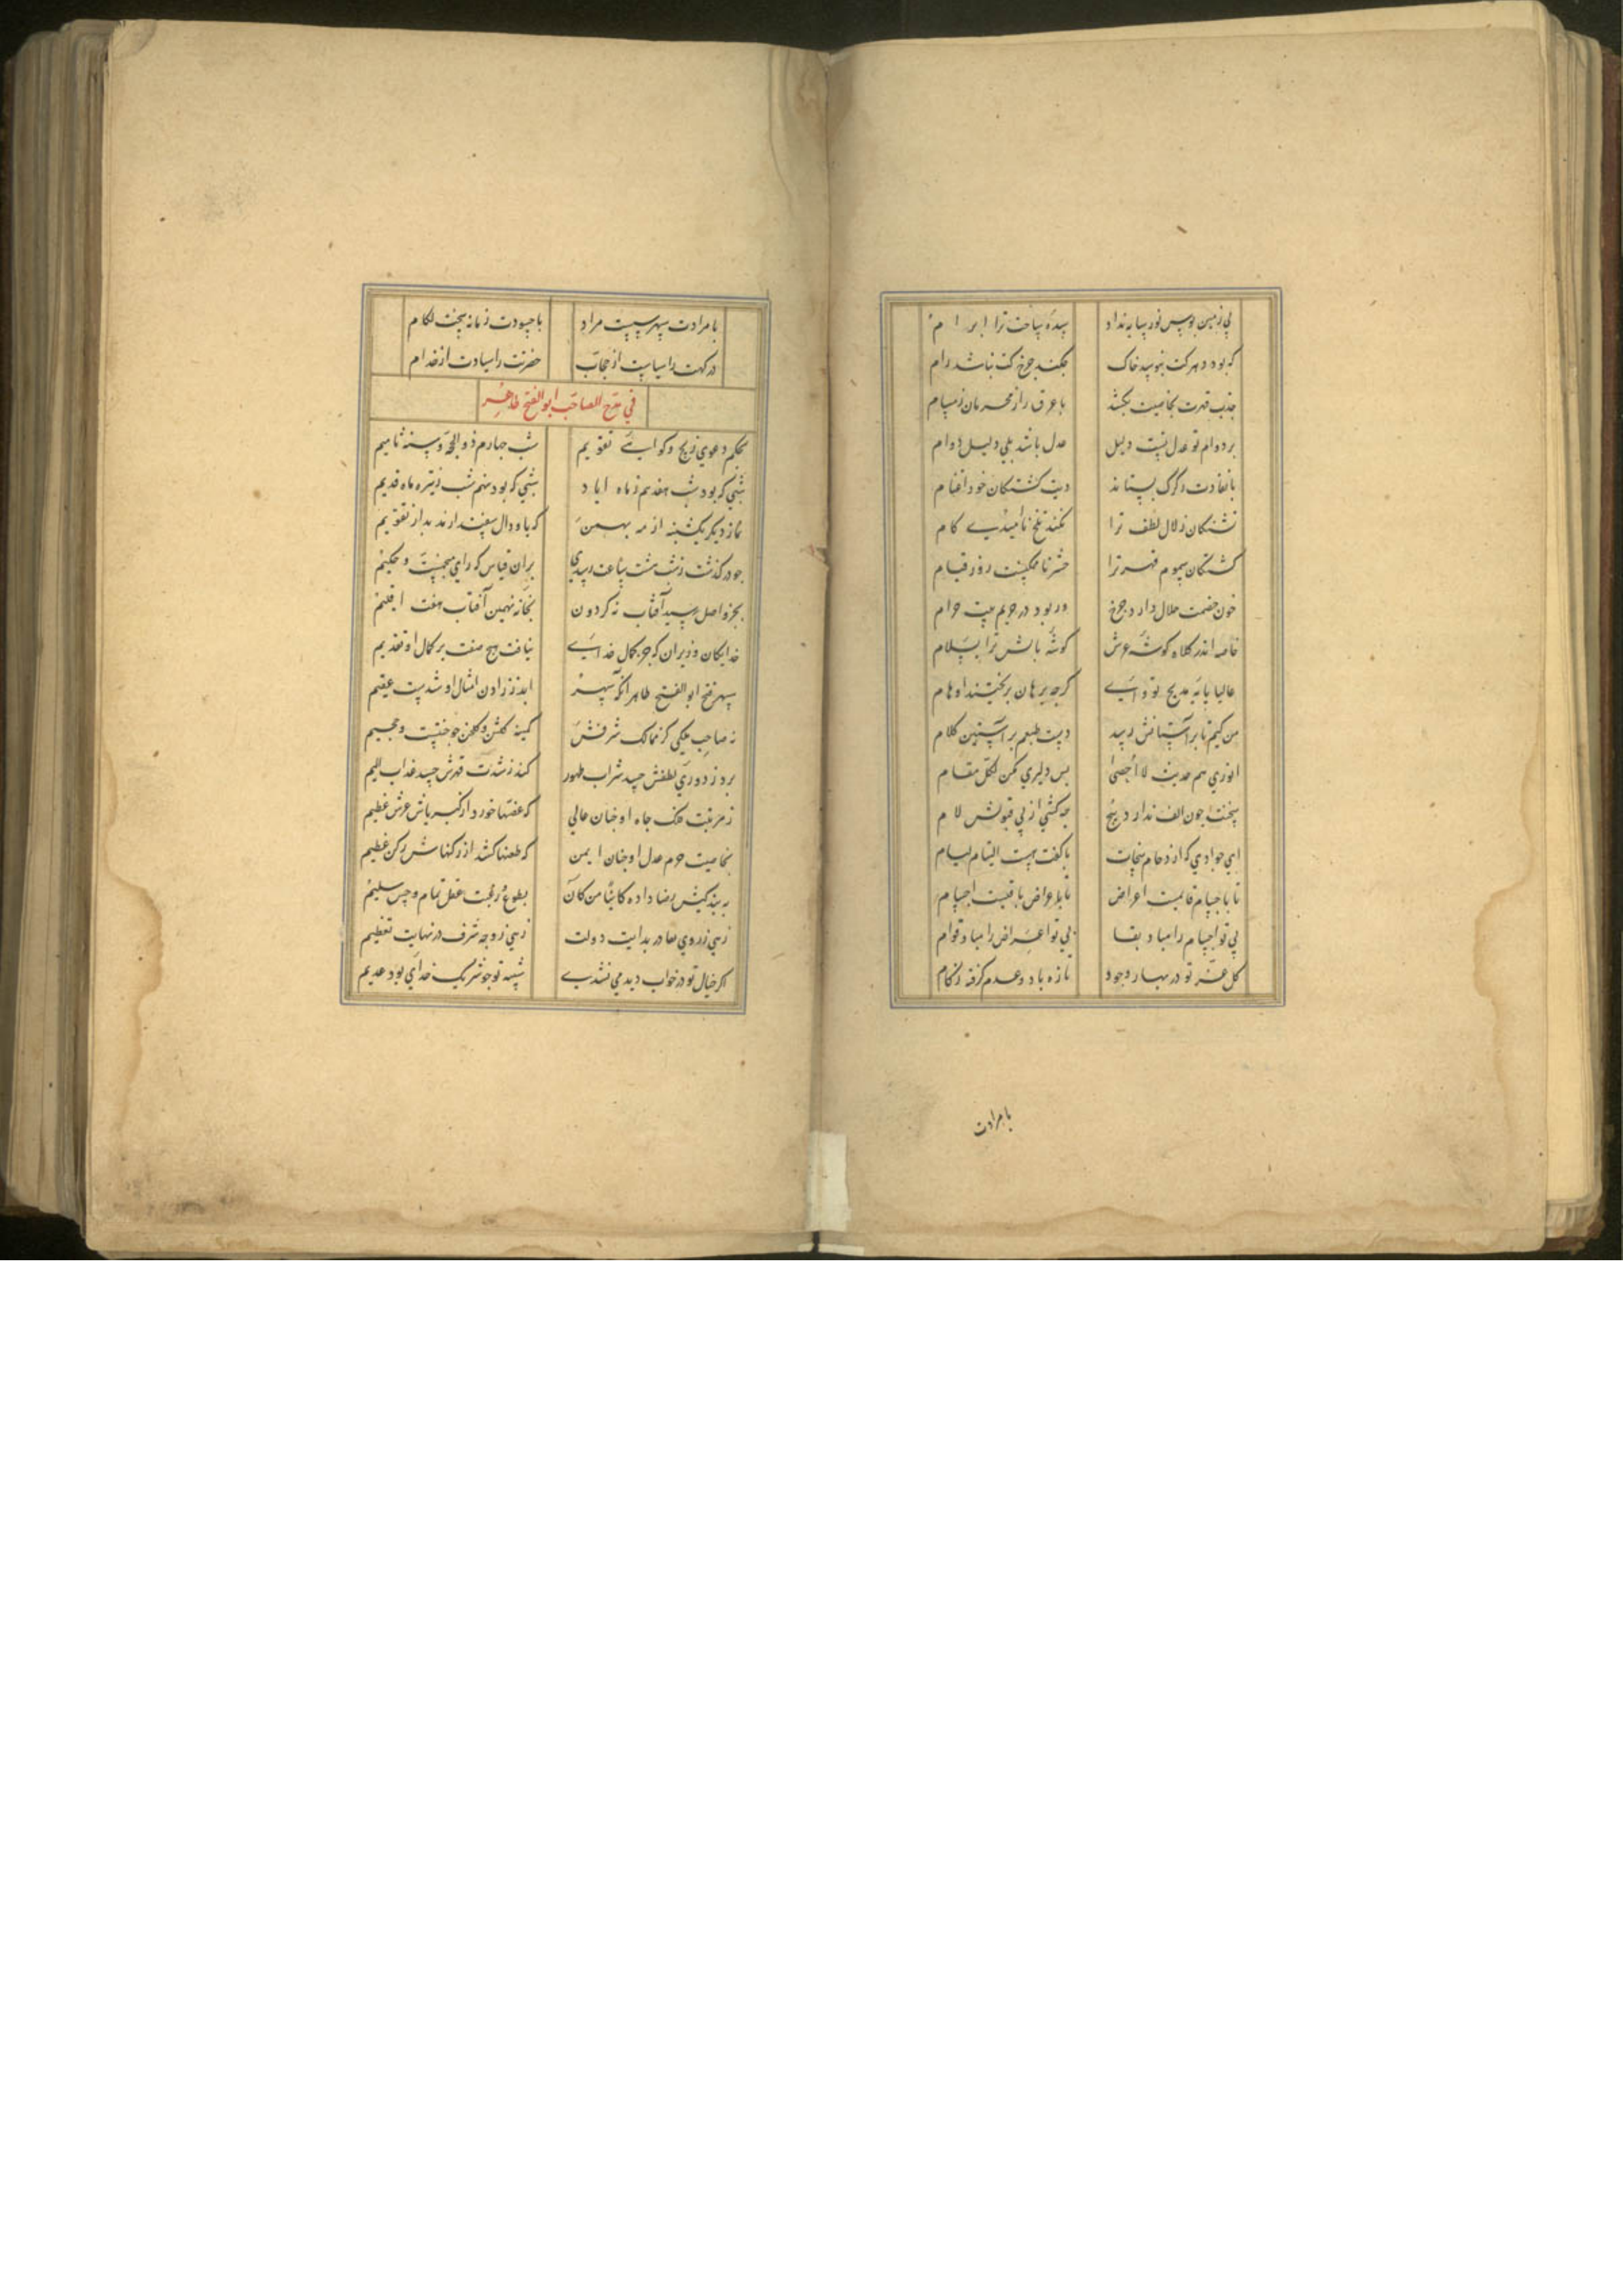 بي زمين بوس نور سايه نداد سده ساحت ترا ابرام
که بود دهر کت نبوسد خاک چکند چرخ کت نباشد رام
جذب قهرت بخاصيت بکشد با عرق راز محرمان ز مسام
بر دوام تو عدل تست دليل عدل باشد بلي دليل دوام
با نفاذت ز کرک بستاند ديت کشتکان خود اغنام
تشنکان زلال لطف ترا نکند تلخ نااميدي کام
کشتکان سموم قهر ترا حشر ناممکنست روز قيام
خون خصمت حلال دارد چرخ ور بود در حريم بيت حرام
خاصه اندر کلاه کوشه عرش کوشه بالش ترا سلام
عاليا پايه مديح تو واي کرچه برهان بريختند اوهام
من کيم تا بر آستانش رسد دست طبعم بر آستين کلام
انوري هم حديث لا احصي بس دليري مکن لکل مقام
سخنت چون الف ندارد هيچ چه کشي از پي قبولش لام
اي جوادي که از دحام سخات با کفت هست التيام ليام
تا باجسام قايمست اعراض تا باعراض باقيست اجسام
بي تو اجسام را مباد بقا بي تو اعراض را مباد قوام
کل عز تو در بهار وجود تازه باد و عدم کرفته زکام
بامرادت
بامرادت سپهر سست مراد با حسودت زمانه سخت لکام
درکهت را سياست از حجاب حضرتت را سيادت از خدام
في مدح الصاحب ابو الفتح طاهر
بحکم دعوي زيج و کواهي تقويم شب چهارم ذو الحجه و سنه ثاميم
شبي که بود شب هفدهم ز ماه اياد شبي که بود نهم شب ز تير ماه قديم
نماز ديکر يکشنبه از مه بهمن که با و دال سفندارمذ بد از تقويم
چو در کذشت ز شب هشت ساعت رصدي بر ان قياس که راي منجمست و حکيم
بجزو اصل رسيد آفتاب نه کردون بخانه نهمين آفتاب هفت اقليم
خدايکان وزيران که جز کمال خداي نيافت هيچ صفت بر کمال او تقديم
سپهر فتح ابو الفتح طاهر انکه سپهر ابد ز زادن امثال او شدست عقيم
نه صاحبي ملکي کز ممالک شرفش کمينه کلشن و کلخن چو جنتست و جحيم
برد ز دوري لطفش حسد شراب طهور کند ز شدت قهرش حسد عذاب اليم
ز مرتبت فلک جاه او چنان عالي که غصها خورد از کبرياش عرش عظيم
بخاصيت حرم عدل او چنان ايمن که طعنها کشد از رکنهاش رکن حطيم
به بندکيش رضا داده کاينا من کان بطوع و رغبت عقل تمام و حس سليم
زهي ز روي بقا در بدايت دولت زهي ز وجه شرف در نهايت تعظيم
اکر خيال تو در خواب ديدمي نشدي شبيه تو چو شريک خداي بود عديم